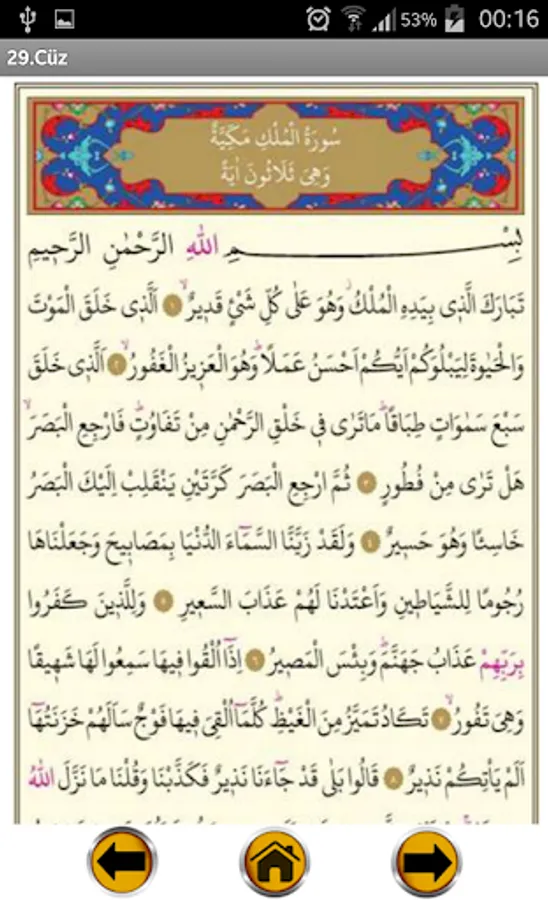 53% 00:16
29.Cüz
سُورَةُ الْمُلْكِ مَكِّيَّةٌ
وَهِىَ ثَلَاثُونَ اٰيَةً
بِسْمِ اللّٰهِ الرَّحْمٰنِ الرَّحِيمِ
تَبَارَكَ الَّذٖى بِيَدِهِ الْمُلْكُۘ وَهُوَ عَلٰى كُلِّ شَىْءٍ قَدٖيرٌۙ ﴿١﴾ اَلَّذٖى خَلَقَ الْمَوْتَ
وَالْحَيٰوةَ لِيَبْلُوَكُمْ اَيُّكُمْ اَحْسَنُ عَمَلًاؕ وَهُوَ الْعَزٖيزُ الْغَفُورُۙ ﴿٢﴾ اَلَّذٖى خَلَقَ
سَبْعَ سَمٰوَاتٍ طِبَاقًاؕ مَاتَرٰى فٖى خَلْقِ الرَّحْمٰنِ مِنْ تَفَاوُتٍؕ فَارْجِعِ الْبَصَرَۙ
هَلْ تَرٰى مِنْ فُطُورٍ ﴿٣﴾ ثُمَّ ارْجِعِ الْبَصَرَ كَرَّتَيْنِ يَنْقَلِبْ اِلَيْكَ الْبَصَرُ
خَاسِئًا وَهُوَ حَسٖيرٌ ﴿٤﴾ وَلَقَدْ زَيَّنَّا السَّمَٓاءَ الدُّنْيَا بِمَصَابٖيحَ وَجَعَلْنَاهَا
رُجُومًا لِلشَّيَاطٖينِ وَاَعْتَدْنَا لَهُمْ عَذَابَ السَّعٖيرِ ﴿٥﴾ وَلِلَّذٖينَ كَفَرُوا
بِرَبِّهِمْ عَذَابُ جَهَنَّمَؕ وَبِئْسَ الْمَصٖيرُ ﴿٦﴾ اِذَٓا اُلْقُوا فٖيهَا سَمِعُوا لَهَا شَهٖيقًا
وَهِىَ تَفُورُۙ ﴿٧﴾ تَكَادُ تَمَيَّزُ مِنَ الْغَيْظِؕ كُلَّمَٓا اُلْقِىَ فٖيهَا فَوْجٌ سَاَلَهُمْ خَزَنَتُهَٓا
اَلَمْ يَاْتِكُمْ نَذٖيرٌ ﴿٨﴾ قَالُوا بَلٰى قَدْ جَٓاءَنَا نَذٖيرٌ فَكَذَّبْنَا وَقُلْنَا مَا نَزَّلَ اللّٰهُ